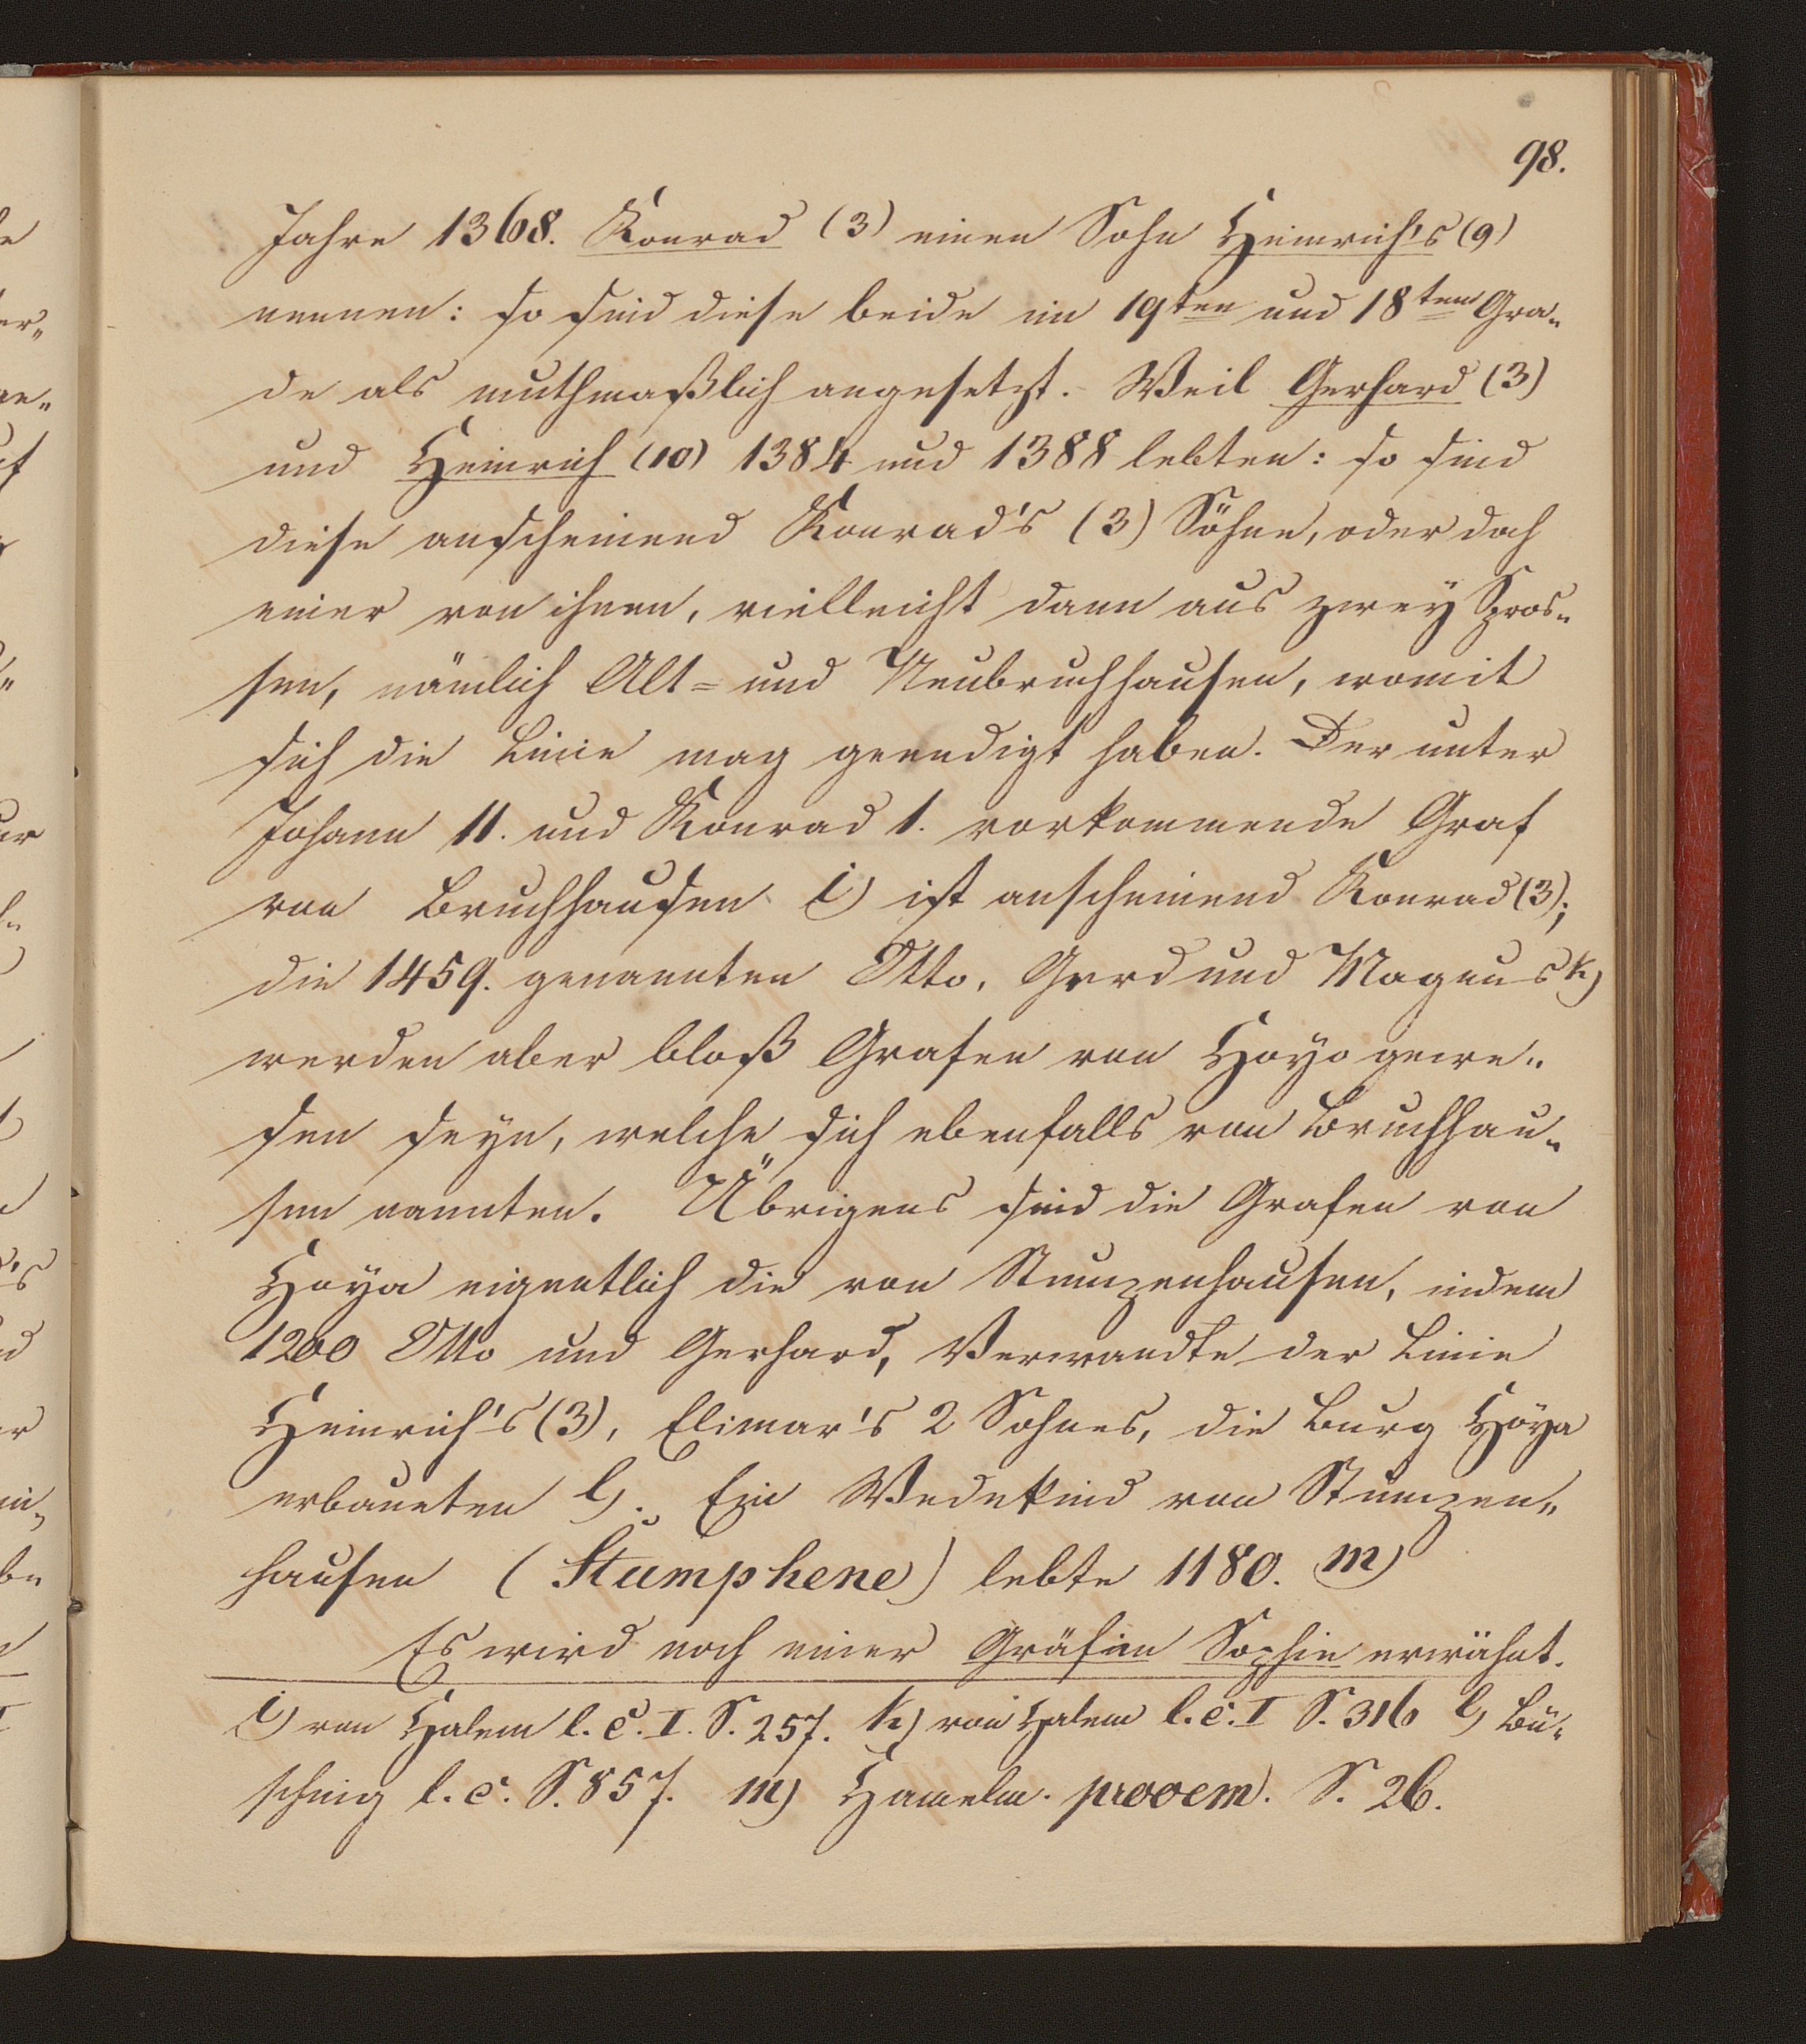 98.
Jahre 1368. Konrad (3) einen Sohn Heinrich's (9)
nennen: so sind diese beide im 19ten und 18tem Gra„
de als muthmaßlich angesetzt. Weil Gerhard (3)
und Heinrich (10) 1384 und 1388 lebten: so sind
diese anscheinend Konrad's (3) Söhne, oder doch
einer von ihnen, vielleicht dann aus zwey Spros„
sen, nämlich Alt= und Neubruchhausen, womit
sich die Linie mag geendigt haben. Der unter
Johann 11. und Konrad 1. vorkommende Graf
von Bruchhausen i) ist anscheinend Konrad (3);
die 1459. genannten Otto, Gerd und Magnus k)
werden aber bloß Grafen von Hoya gewe„
sen seyn, welche sich ebenfalls von Bruchhau„
sen nannten. Übrigens sind die Grafen von
Hoya eigentlich die von Stumpenhausen, indem
1200 Otto und Gerhard, Verwandte der Linie
Heinrich's (3), Elimar's 2 Sohnes, die Burg Hoya
erbaueten l). Ein Wedekind von Stumpen„
hausen (Stumphene) lebte 1180. m)
Es wird noch einer Gräfinn Sophie erwähnt.
i) von Halem l. c. I. S. 257. k) von Halem l. c. I S. 316 l) Bü„
sching l. c. S. 857. m) Hamelm. prooem. S. 26.